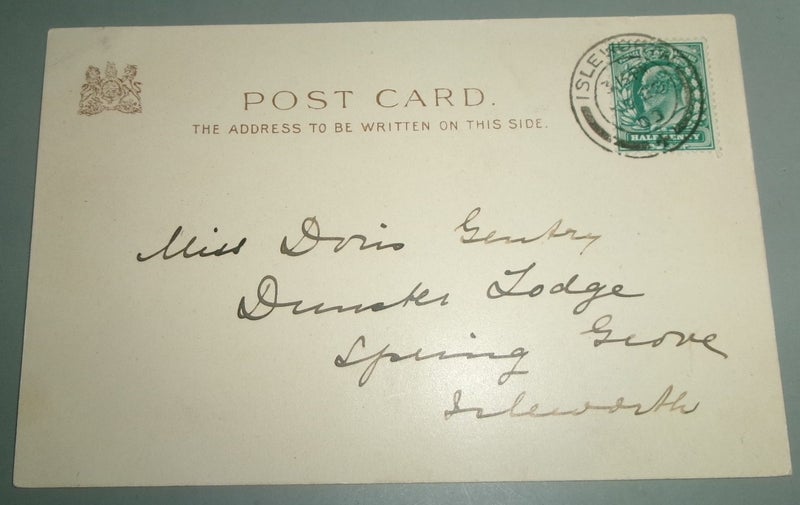 POST CARD.
THE ADDRESS TO BE WRITTEN ON THIS SIDE.
ISLEWORTH
HALFPENNY
Miss Doris Gentry
Dunster Lodge
Spring Grove
Isleworth